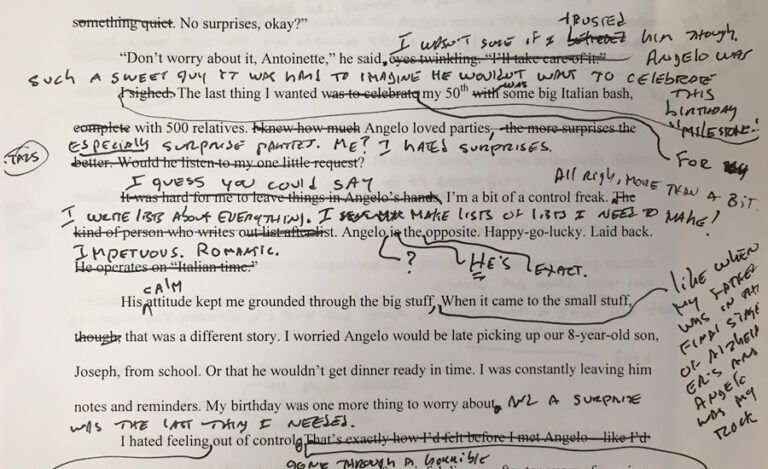 something quiet. No surprises, okay?”
TRUSTED
I WASN'T SURE IF I HIM THOUGH.
“Don’t worry about it, Antoinette,” he said, eyes twinkling. “I’ll take care of it.” ANGELO WAS
SUCH A SWEET GUY IT WAS HARD TO IMAGINE HE WOULDN'T WANT TO CELEBRATE
THIS
BIRTHDAY
"MILESTONE."
WAS
I sighed. The last thing I wanted was to celebrate my 50th with some big Italian bash,
FOR
complete with 500 relatives. I knew how much Angelo loved parties, the more surprises the
ESPECIALLY SURPRISE PARTIES. ME? I HATED SURPRISES.
better. Would he listen to my one little request?
I GUESS YOU COULD SAY
ALL RIGHT, MORE THAN A BIT.
It was hard for me to leave things in Angelo’s hands, I’m a bit of a control freak. The
I WRITE LISTS ABOUT EVERYTHING. I MAKE LISTS OF LISTS I NEED TO MAKE!
kind of person who writes out list after list. Angelo is the opposite. Happy-go-lucky. Laid back.
IMPETUOUS. ROMANTIC.
? HE'S EXACT.
He operates on “Italian time.”
CALM
His attitude kept me grounded through the big stuff, When it came to the small stuff,
LIKE WHEN
MY FATHER
WAS IN THE
FINAL STAGE
OF ALZHEIM
ER'S AND
ANGELO
WAS MY
ROCK
though, that was a different story. I worried Angelo would be late picking up our 8-year-old son,
Joseph, from school. Or that he wouldn’t get dinner ready in time. I was constantly leaving him
notes and reminders. My birthday was one more thing to worry about, AND A SURPRISE
WAS THE LAST THING I NEEDED.
I hated feeling out of control. That’s exactly how I’d felt before I met Angelo—like I’d
GONE THROUGH A HORRIBLE